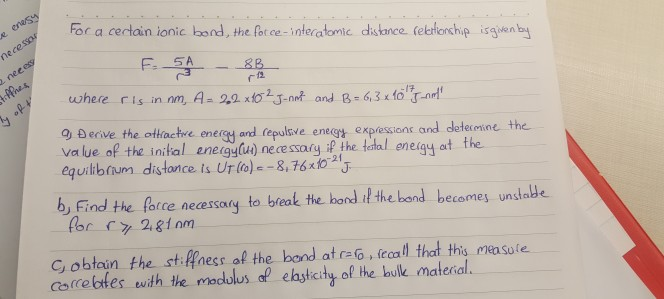 e energy
necessar
e necess
stiffness
y of t
For a certain ionic bond, the force-interatomic distance relationship is given by
F = 5A/r³ - 8B/r¹²
where r is in nm, A = 2,2 x10⁻² J-nm² and B = 6,3 x 10⁻¹⁷ J-nm¹¹
a) Derive the attractive energy and repulsive energy expressions and determine the
value of the initial energy(ui) necessary if the total energy at the
equilibrium distance is UT(ro) = -8,76x10⁻²¹ J.
b) Find the force necessary to break the bond if the bond becomes unstable
for r ⩾ 2,81 nm
c) obtain the stiffness of the bond at r=ro, recall that this measure
correlates with the modulus of elasticity of the bulk material.